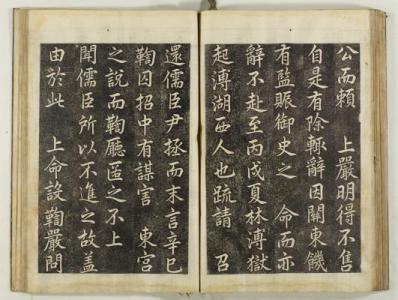 公而賴　上嚴明得不售
自是有除輒辭因關東饑
有監賑御史之　命而亦
辭不赴至丙戌夏林溥獄
起溥湖西人也疏請　召
還儒臣尹拯而末言辛巳
鞫囚招中有謀害　東宮
之說而鞫廳匿之不上
聞儒臣所以不進之故蓋
由於此　上命設鞫嚴問